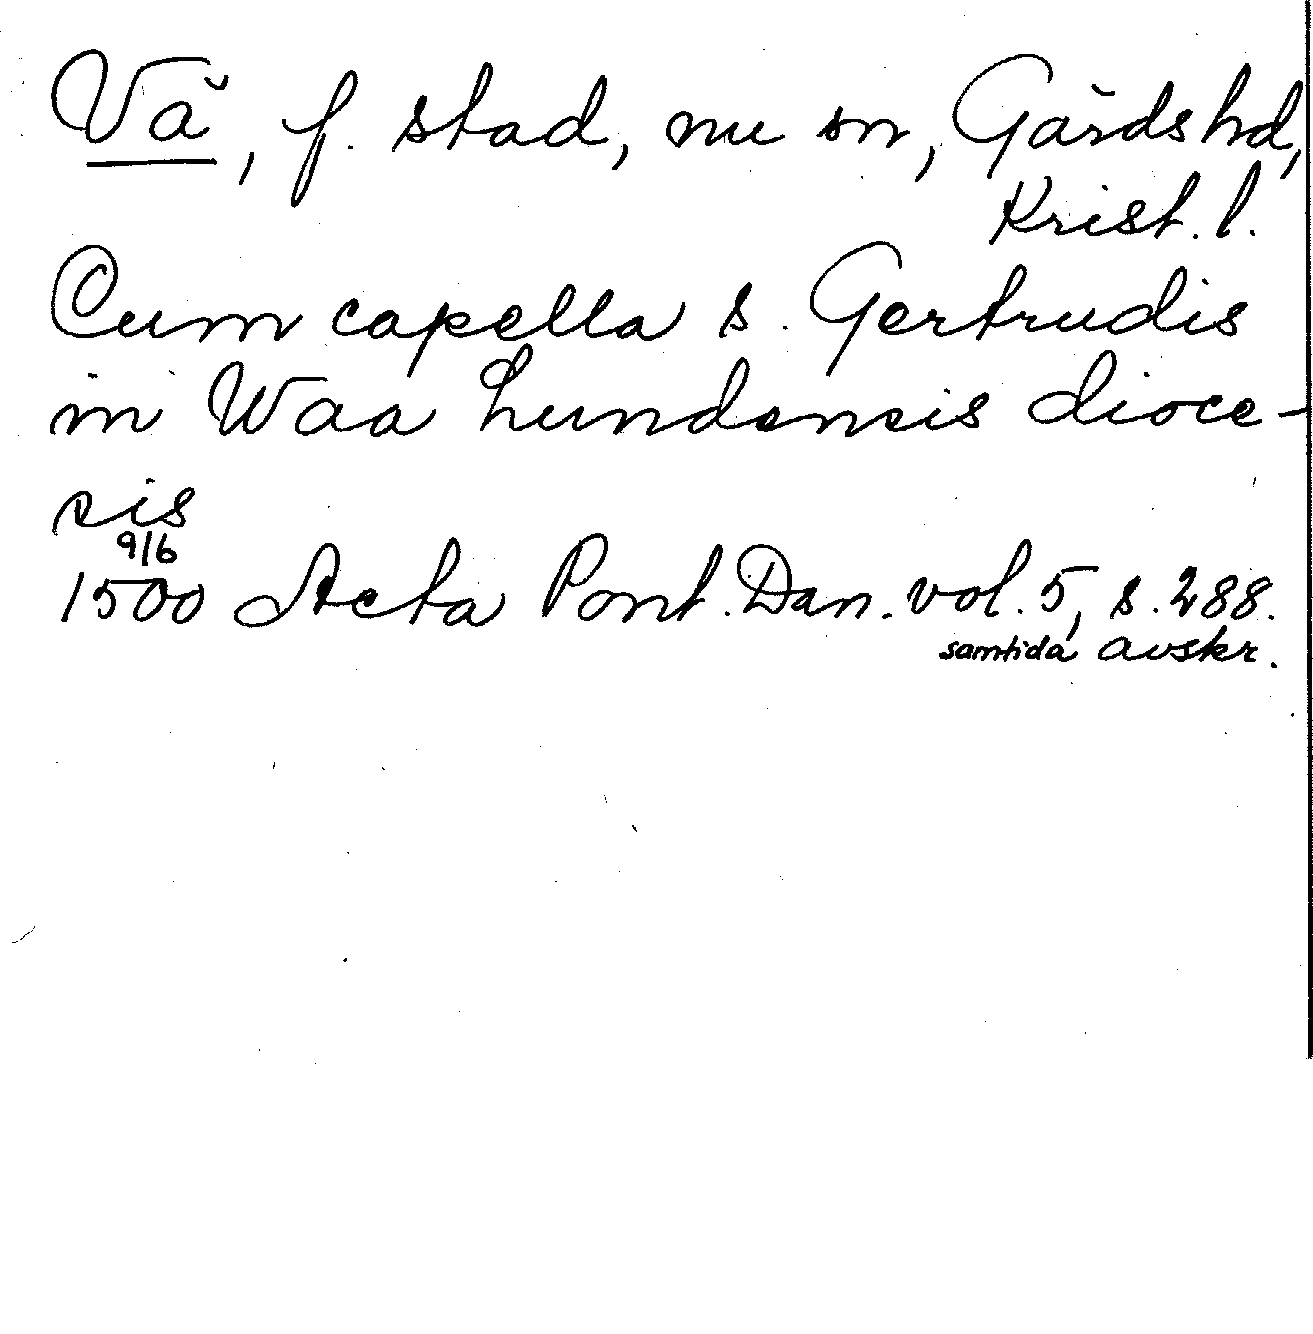 Vå, f. stad, nu sn, Gärds hd,
Krist. l.
Cum capella s. Gertrudis
in Waa Lundensis dioce-
sis
9/6
1500 Acta Pont. Dan. vol. 5, s. 288.
samtida avskr.